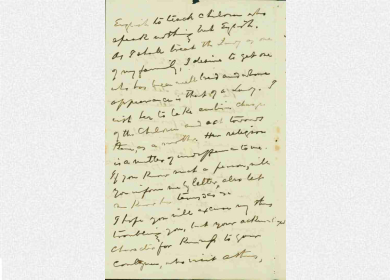 English to teach children who
speak nothing but English.
As I shall treat the lady as one
of my family, I desire to get one
who has been well bred and whose
appearance is that of a lady. I
wish her to take entire charge
of the children and act towards
them as a mother. Her religion
is a matter of indifference to me.
If you know such a person, will
you inform me by letter, also let
me know her terms &c &c
I hope you will excuse my thus
troubling you, but your
character for kindness to your
who visit